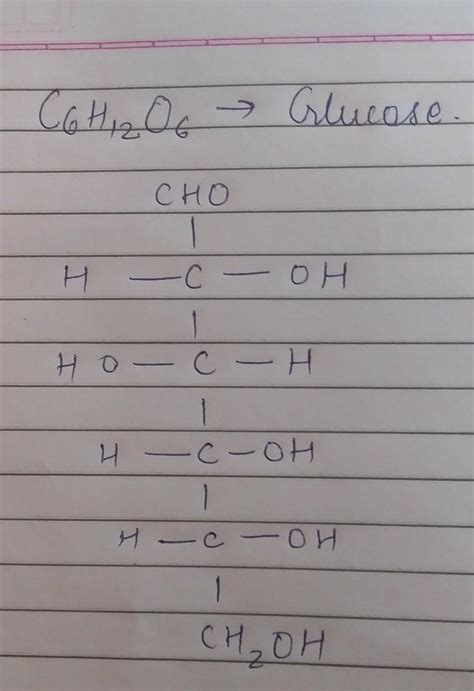 C₆H₁₂O₆ → Glucose.
CHO
|
H — C — OH
|
HO — C — H
|
H — C — OH
|
H — C — OH
|
CH₂OH